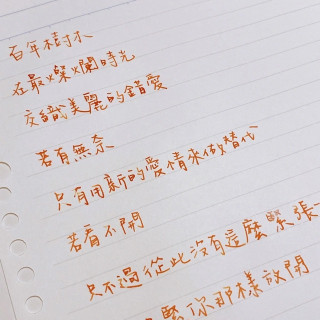 百年樹木
在最燦爛時光
交織美麗的錯愛
若有無奈
只有用新的愛情來做替代
若看不開
只不過從此沒有這麼緊張
你那樣放開